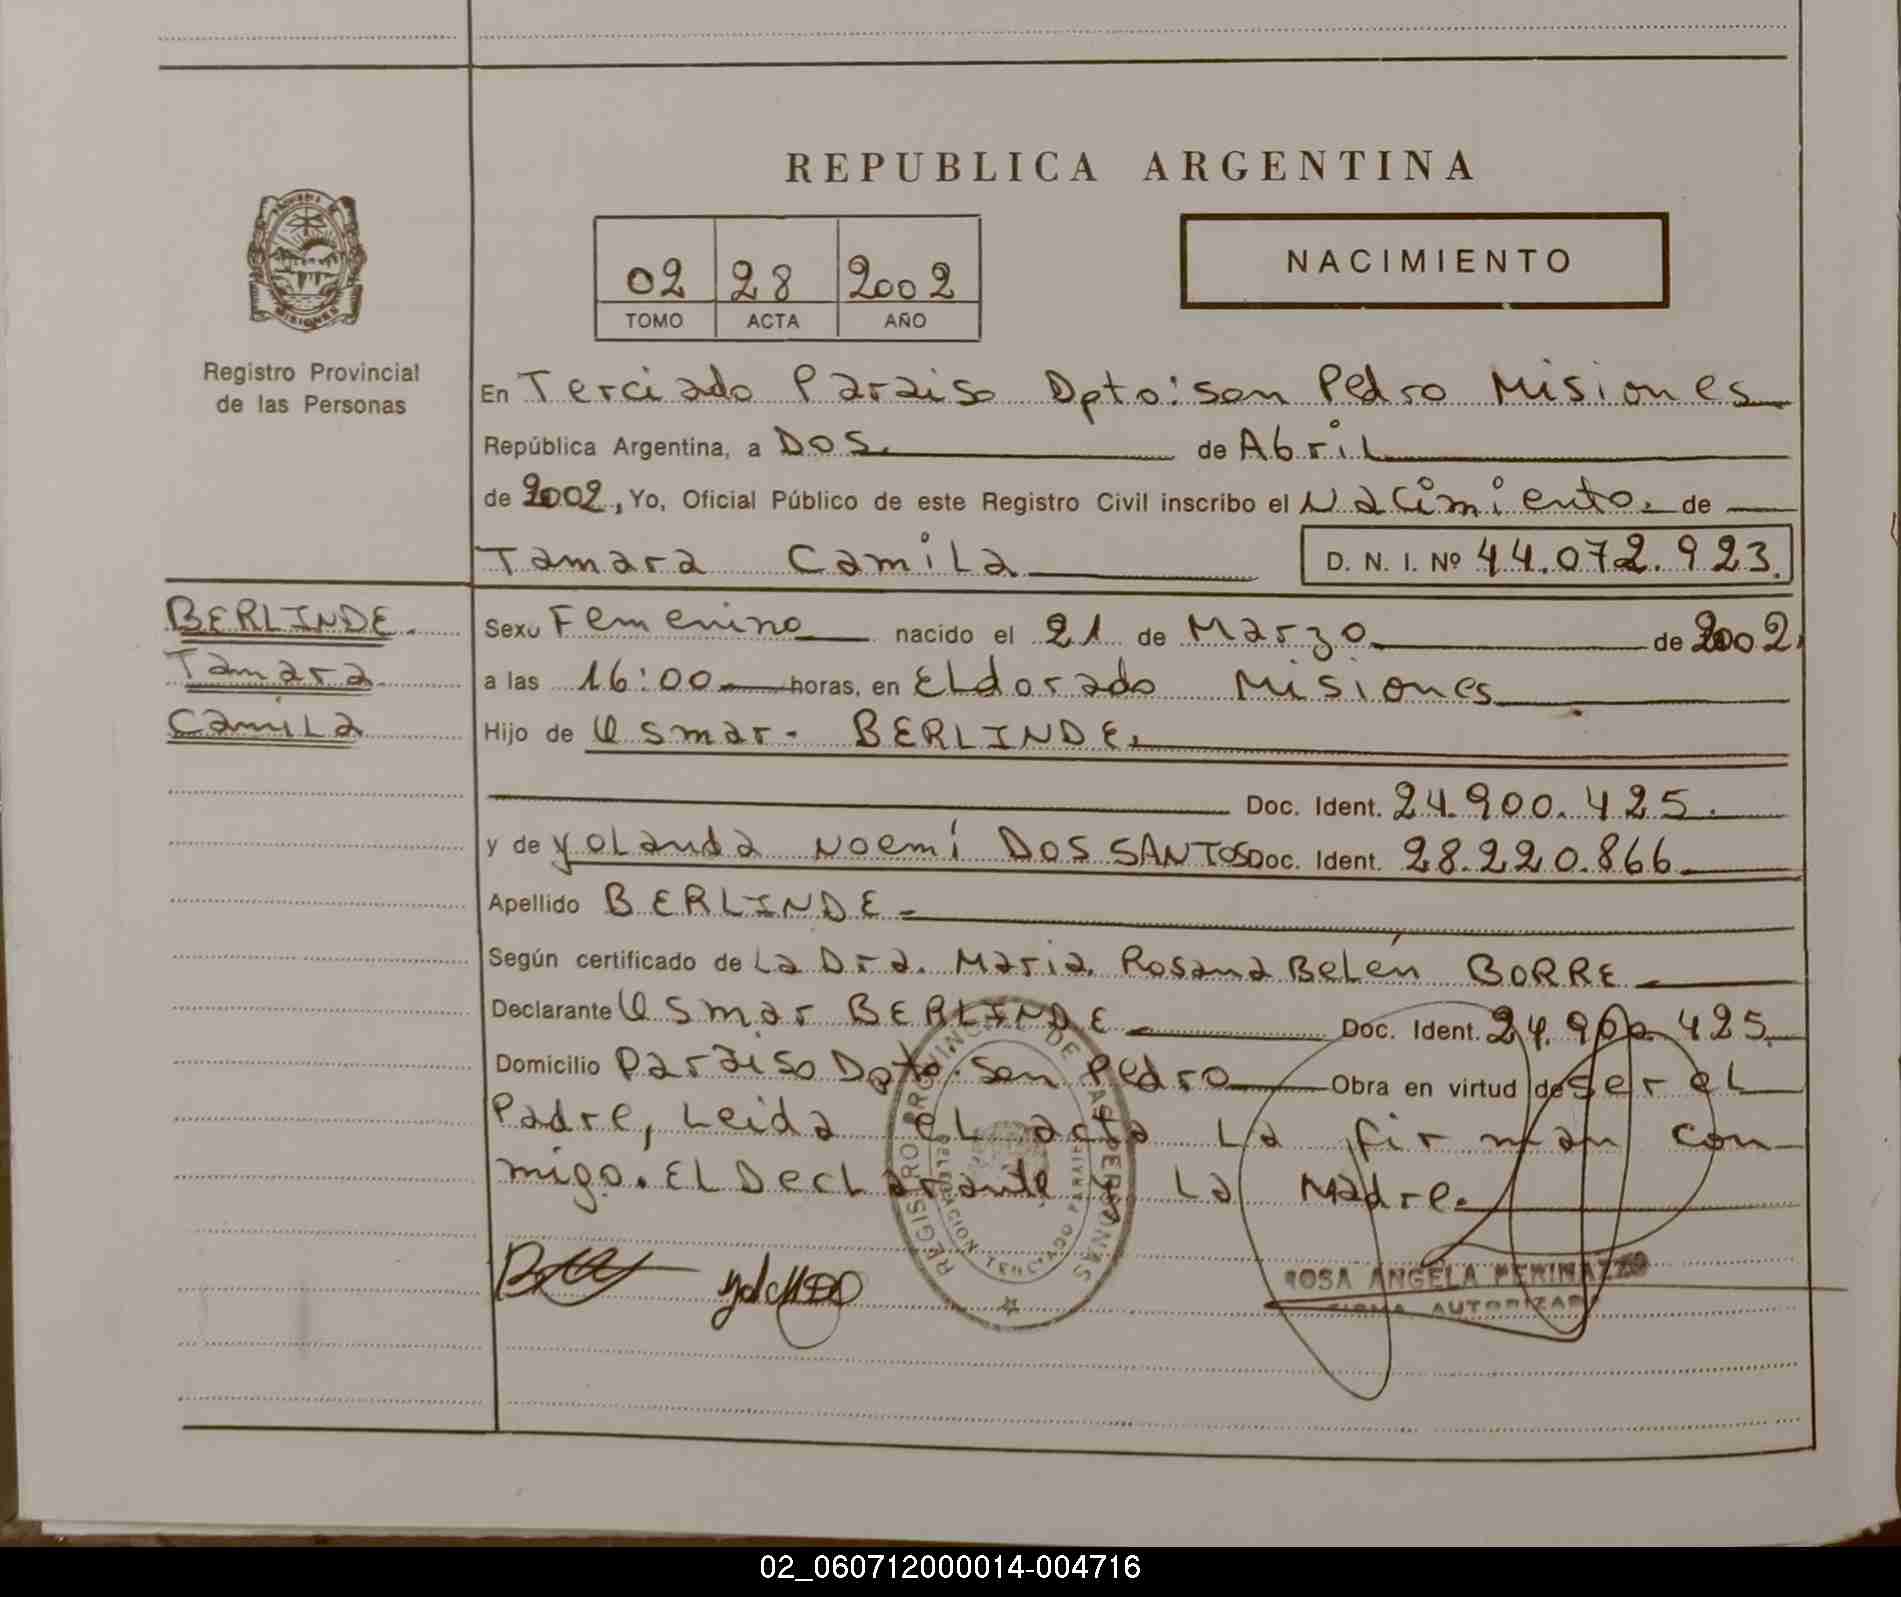 REPUBLICA ARGENTINA
MISIONES
Registro Provincial
de las Personas
02 28 2002
TOMO ACTA AÑO
NACIMIENTO
En Terciado Paraiso Dpto: san Pedro Misiones
República Argentina, a Dos. de Abril
de 2002, Yo, Oficial Público de este Registro Civil inscribo el Nacimiento. de
Tamara Camila D. N. I. Nº 44.072.923.
BERLINDE.
Tamara
Camila
Sexo Femenino nacido el 21 de Marzo de 2002.
a las 16:00 horas, en ELdorado Misiones
Hijo de Osmar. BERLINDE.
Doc. Ident. 24.900.425.
y de Yolanda Noemí DOS SANTOS Doc. Ident. 28.220.866
Apellido BERLINDE
Según certificado de La Dra. Maria Rosana Belén BORRE
Declarante Osmar BERLINDE Doc. Ident. 24.900.425.
Domicilio Paraiso Dpto. San Pedro Obra en virtud de ser el
Padre, Leida el acta La firman con
migo. El Declarante y La Madre.
REGISTRO PROVINCIAL DE LAS PERSONAS
DELEGACION TERCIADO PARAISO
ROSA ANGELA PERINAZZO
FIRMA AUTORIZADA
02_060712000014-004716